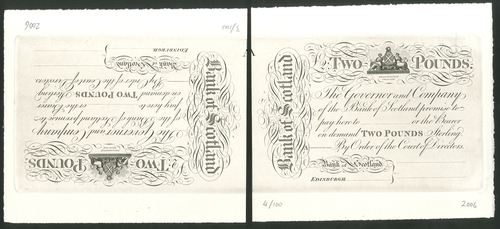 Bank of Scotland
TWO POUNDS
The Governor and Company
of the Bank of Scotland promise to
pay here to or the Bearer
on demand TWO POUNDS Sterling
By Order of the Court of Directors
Bank of Scotland
EDINBURGH
4/100
2006
Bank of Scotland
TWO POUNDS
The Governor and Company
of the Bank of Scotland promise to
pay here to or the Bearer
on demand TWO POUNDS Sterling
By Order of the Court of Directors
Bank of Scotland
EDINBURGH
2006